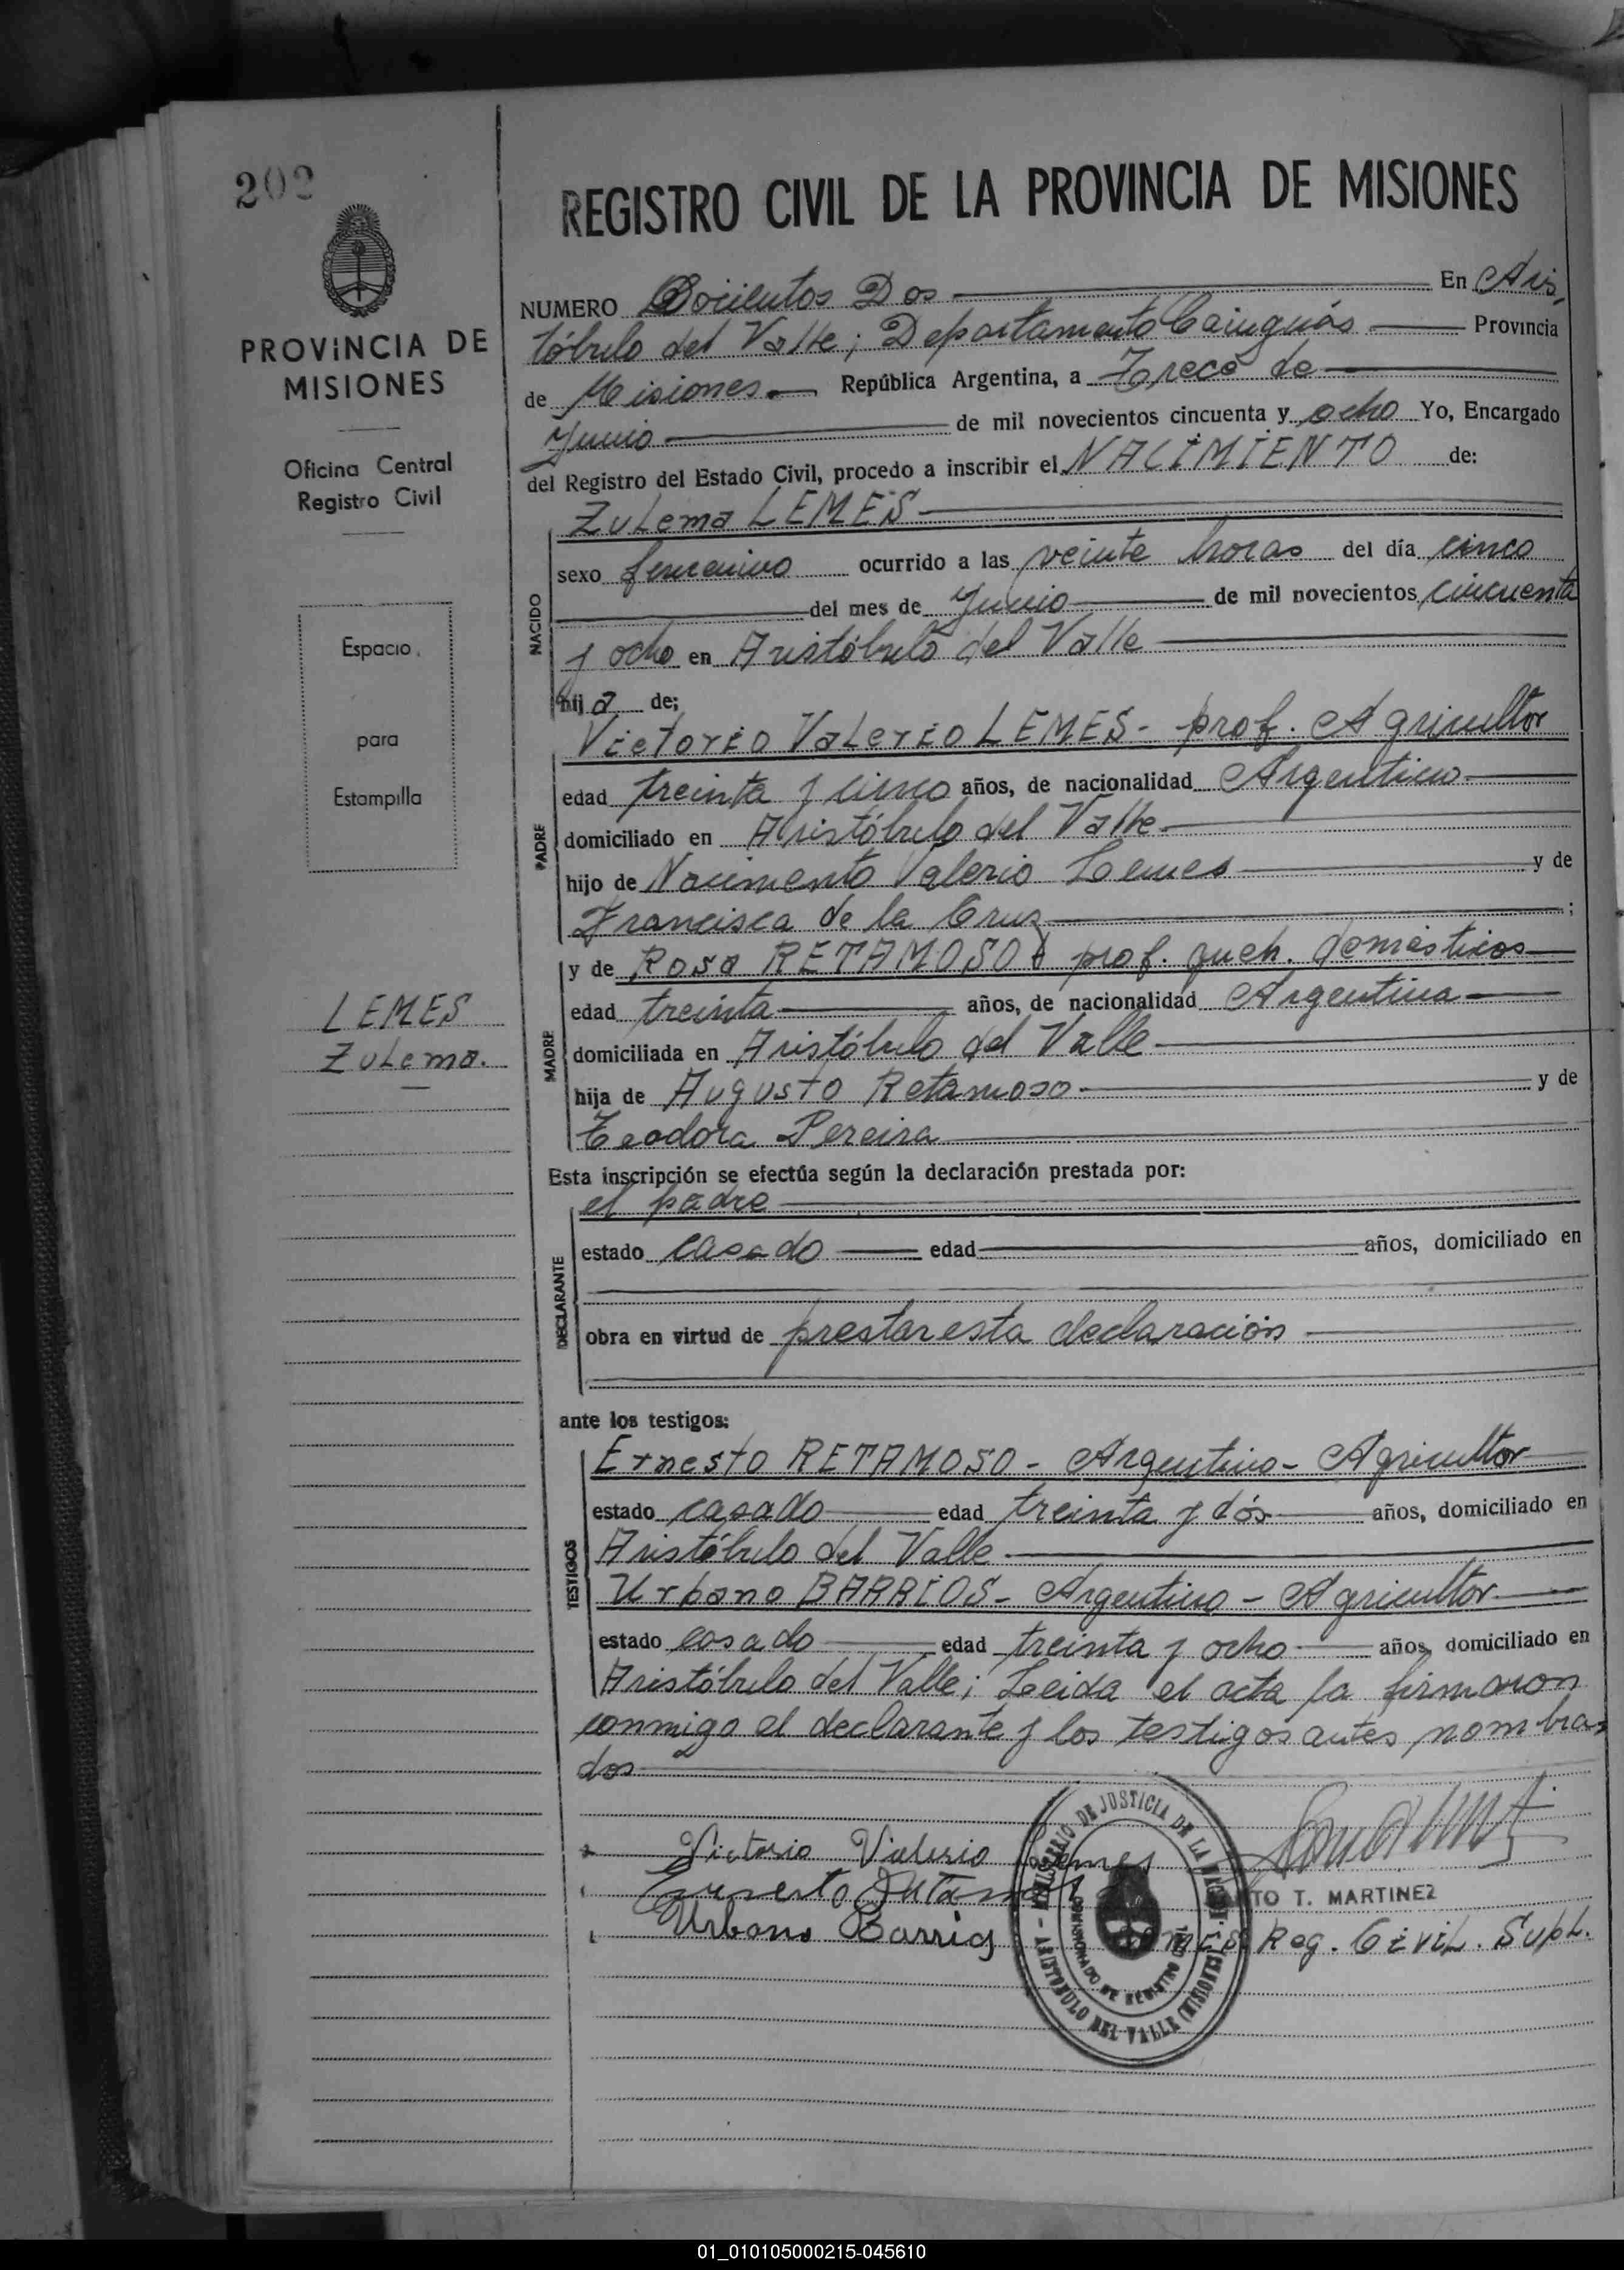 202
PROVINCIA DE
MISIONES
Oficina Central
Registro Civil
Espacio
para
Estampilla
LEMES
Zulema.
REGISTRO CIVIL DE LA PROVINCIA DE MISIONES
NUMERO Docientos Dos En Aris
tóbulo del Valle; Departamento Cainguás Provincia
de Misiones. República Argentina, a Trece de
Junio de mil novecientos cincuenta y ocho Yo, Encargado
del Registro del Estado Civil, procedo a inscribir el NACIMIENTO de:
NACIDO
Zulema LEMES
sexo femenino ocurrido a las veinte horas del día cinco
del mes de Junio de mil novecientos cincuenta
y ocho en Aristóbulo del Valle
hija de;
PADRE
Victorio Valerio LEMES - prof. Agricultor
edad treinta y cinco años, de nacionalidad Argentino
domiciliado en Aristóbulo del Valle
hijo de Nacimento Valerio Lemes y de
Francisca de la Cruz ;
MADRE
y de Rosa RETAMOSO prof. queh. domésticos
edad treinta años, de nacionalidad Argentina
domiciliada en Aristóbulo del Valle
hija de Augusto Retamoso y de
Teodora Pereira
Esta inscripción se efectúa según la declaración prestada por:
DECLARANTE
el padre
estado casado edad años, domiciliado en
obra en virtud de prestar esta declaración
ante los testigos:
TESTIGOS
Ernesto RETAMOSO - Argentino - Agricultor
estado casado edad treinta y dós años, domiciliado en
Aristóbulo del Valle
Urbano BARRIOS - Argentino - Agricultor
estado casado edad treinta y ocho años, domiciliado en
Aristóbulo del Valle; Leida el acta la firmaron
conmigo el declarante y los testigos antes nombra
dos
Victorio Valerio Lemes
Ernesto
Urbano Barrios
MINISTERIO DE JUSTICIA DE LA
ARISTOBULO DEL VALLE (MISIONES)
TO T. MARTINEZ
Reg. Civil. Supl.
01_010105000215-045610